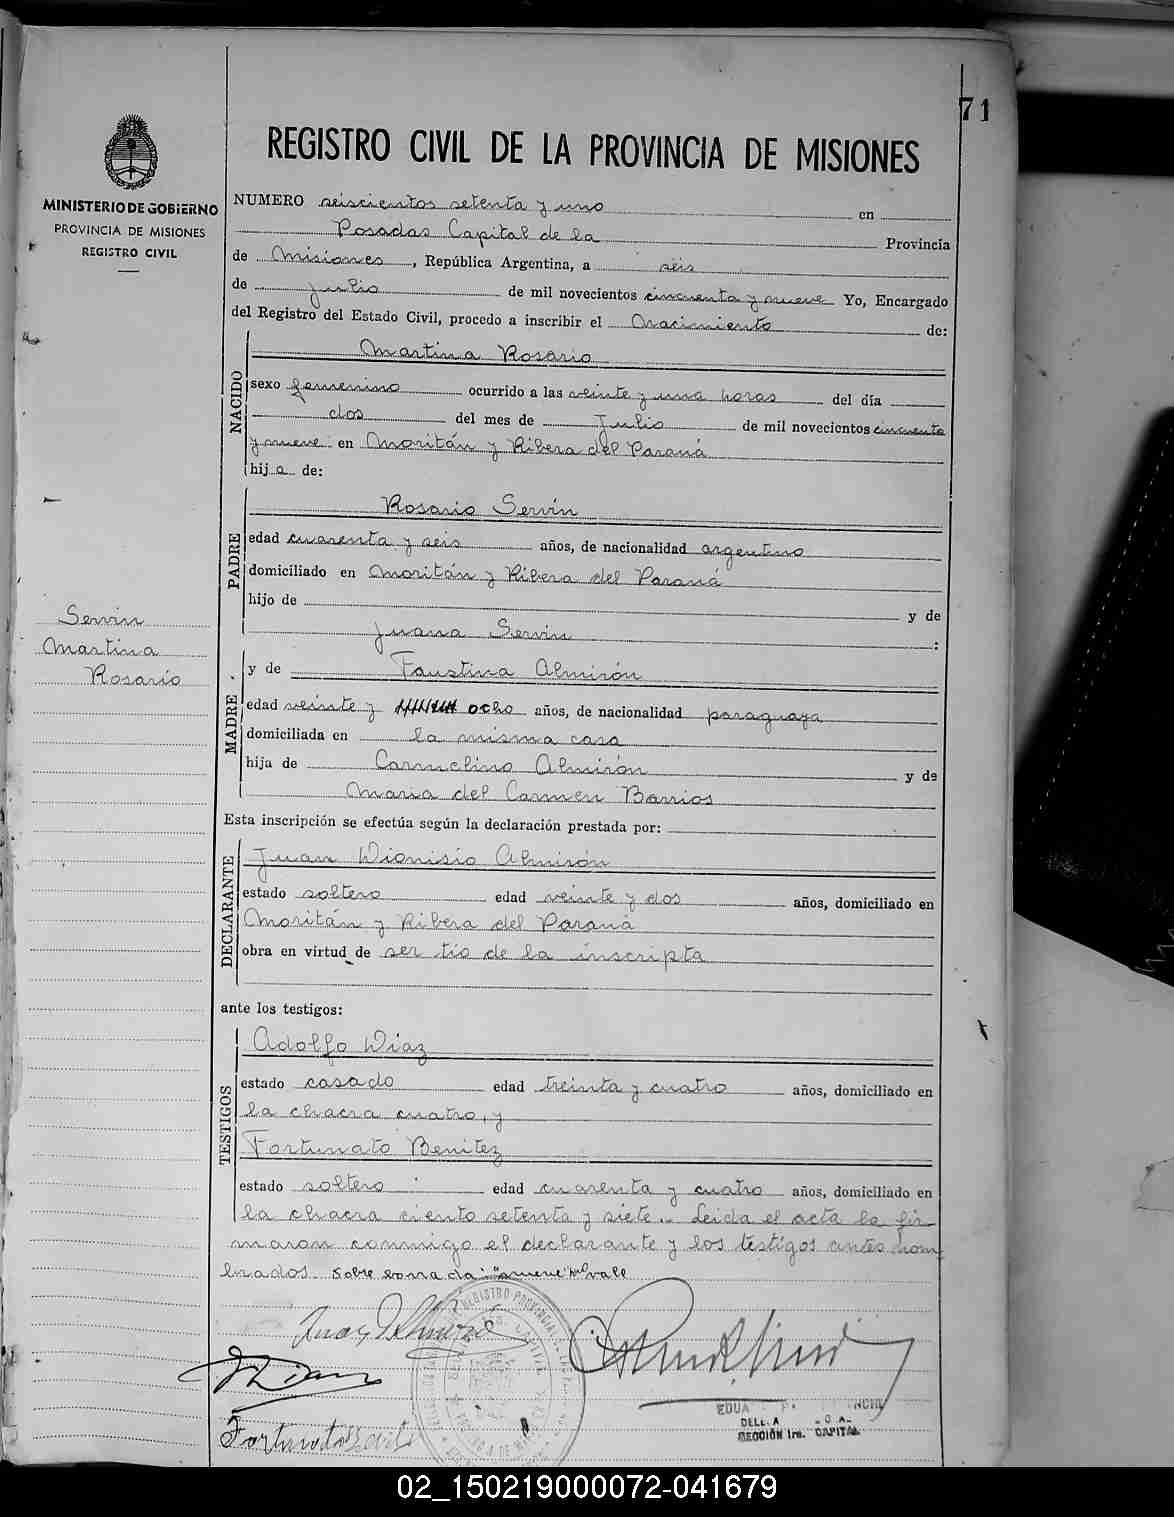 71
REGISTRO CIVIL DE LA PROVINCIA DE MISIONES
MINISTERIO DE GOBIERNO
PROVINCIA DE MISIONES
REGISTRO CIVIL
NUMERO seiscientos setenta y uno en
Posadas Capital de la Provincia
de Misiones, República Argentina, a seis
de Julio de mil novecientos cincuenta y nueve Yo, Encargado
del Registro del Estado Civil, procedo a inscribir el Nacimiento de:
NACIDO
Martina Rosario
sexo femenino ocurrido a las veinte y una horas del día
dos del mes de Julio de mil novecientos cincuenta
y nueve en Moritán y Ribera del Paraná
hija de:
PADRE
Rosario Servin
edad cuarenta y seis años, de nacionalidad argentino
domiciliado en Moritán y Ribera del Paraná
hijo de y de
Juana Servin :
Servin
Martina
Rosario
MADRE
y de Faustina Almirón
edad veinte y ocho años, de nacionalidad paraguaya
domiciliada en la misma casa
hija de Carmelino Almirón y de
Maria del Carmen Barrios
Esta inscripción se efectúa según la declaración prestada por:
DECLARANTE
Juan Dionisio Almirón
estado soltero edad veinte y dos años, domiciliado en
Moritán y Ribera del Paraná
obra en virtud de ser tio de la inscripta
ante los testigos:
TESTIGOS
Adolfo Diaz
estado casado edad treinta y cuatro años, domiciliado en
la chacra cuatro, y
Fortunato Benitez
estado soltero edad cuarenta y cuatro años, domiciliado en
la chacra ciento setenta y siete.. Leida el acta la fir
maron conmigo el declarante y los testigos antes nom
brados. Sobre borrado: "nueve" vale
Juan D Almiron
Fortunato
REGISTRO PROVINCIAL
EDUA
SECCIÓN 1ra. CAPITAL
02_150219000072-041679